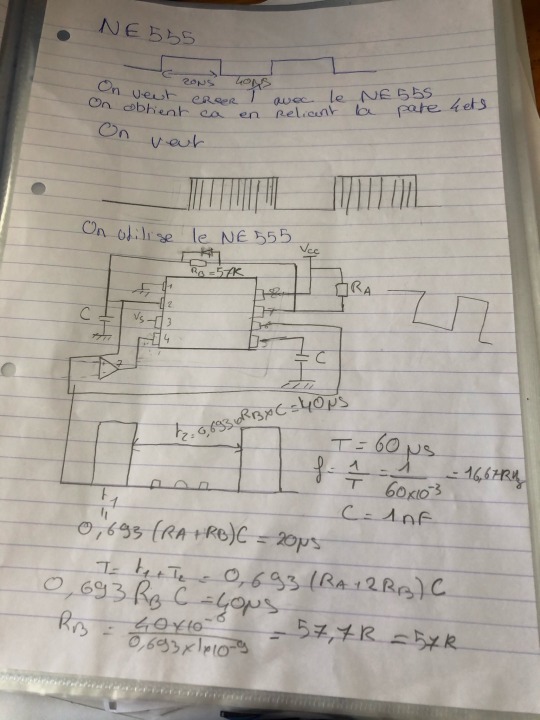 NE555
20µs 40µs
On veut créer 1 avec le NE555
On obtient ça en reliant la pate 4 et 5
On veut
On utilise le NE555
Vcc
RB=57K
RA
1
2
3
4
8
7
6
5
C
Vs
C
t2=0,693xRBxC=40µs
t1
T=60µs
f=1/T=1/60x10-3=16,67KHz
C=1nF
0,693(RA+RB)C=20µs
T=t1+T2=0,693(RA+2RB)C
0,693RBC=40µs
RB=40x10-6/0,693x1x10-9=57,7K=57K